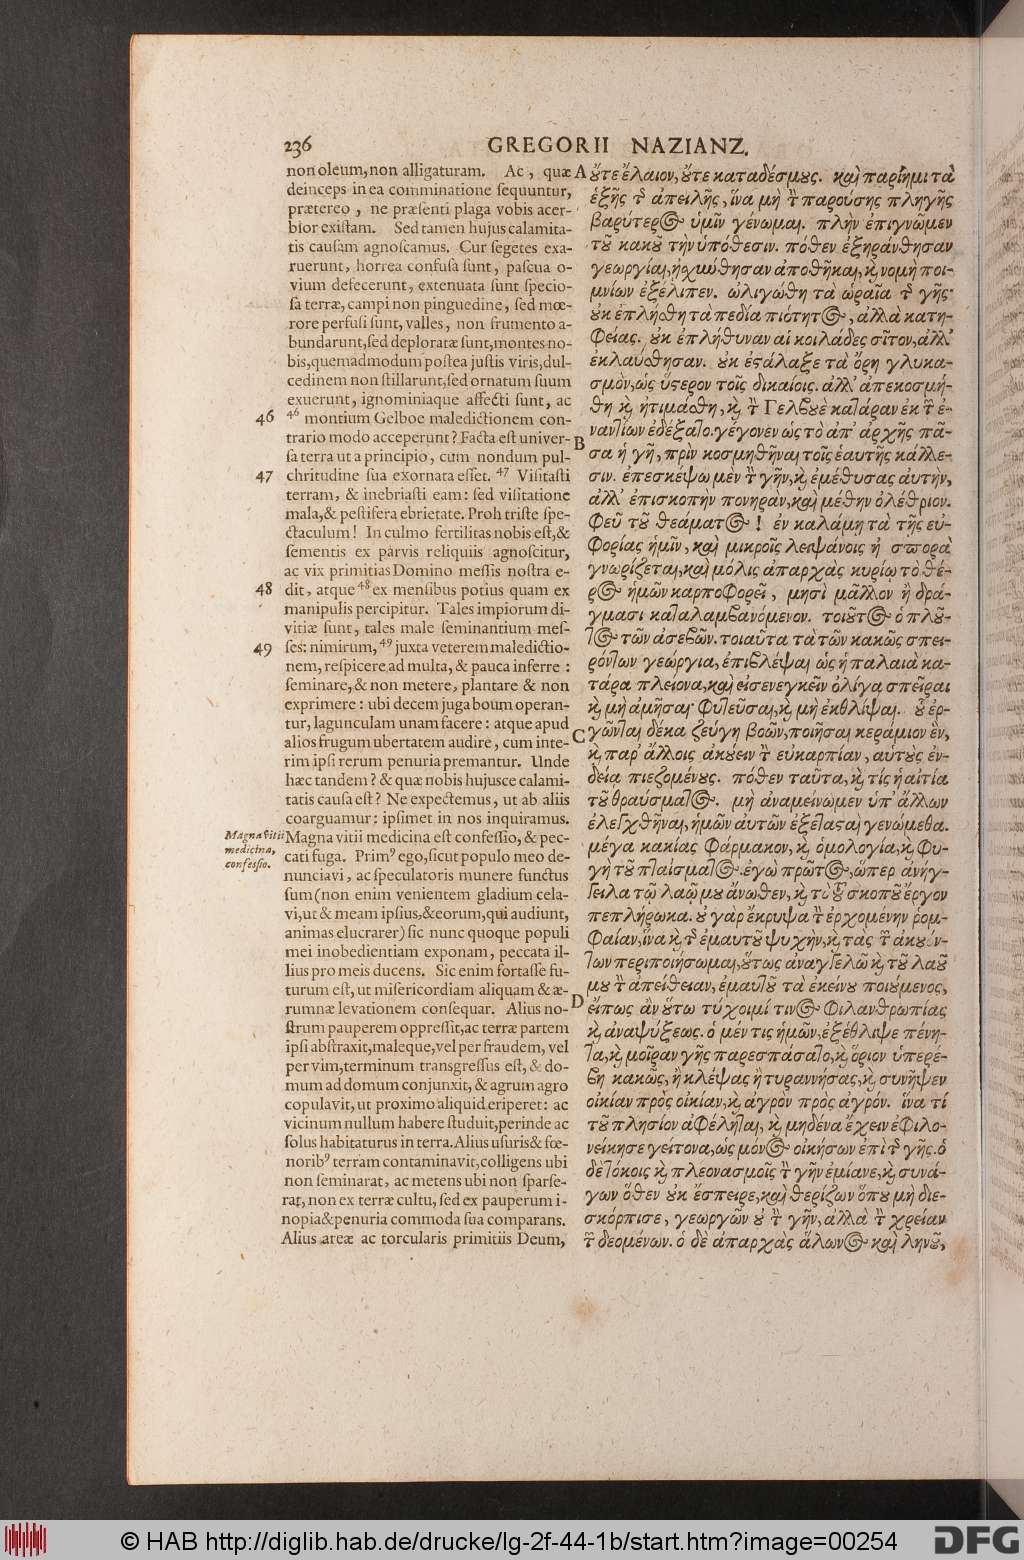 236
GREGORII NAZIANZ.
non oleum, non alligaturam. Ac, quæ
deinceps in ea comminatione ſequuntur,
prætereo, ne præſenti plaga vobis acer-
bior exiſtam. Sed tamen hujus calamita-
tis cauſam agnoſcamus. Cur ſegetes exa-
ruerunt, horrea confuſa ſunt, paſcua o-
vium defecerunt, extenuata ſunt ſpecio-
ſa terræ, campi non pinguedine, ſed mœ-
rore perfuſi ſunt, valles, non frumento a-
bundarunt, ſed deploratæ ſunt, montes no-
bis, quemadmodum poſtea juſtis viris, dul-
cedinem non ſtillarunt, ſed ornatum ſuum
exuerunt, ignominiaque affecti ſunt, ac
46 ⁴⁶ montium Gelboe maledictionem con-
trario modo acceperunt? Facta eſt univer-
ſa terra ut a principio, cum nondum pul-
47 chritudine ſua exornata eſſet. ⁴⁷ Viſitaſti
terram, & inebriaſti eam: ſed viſitatione
mala, & peſtifera ebrietate. Proh triſte ſpe-
ctaculum! In culmo fertilitas nobis eſt, &
ſementis ex parvis reliquiis agnoſcitur,
ac vix primitias Domino meſſis noſtra e-
48 dit, atque ⁴⁸ ex menſibus potius quam ex
manipulis percipitur. Tales impiorum di-
vitiæ ſunt, tales male ſeminantium meſ-
49 ſes: nimirum, ⁴⁹ juxta veterem maledictio-
nem, reſpicere ad multa, & pauca inferre:
ſeminare, & non metere, plantare & non
exprimere: ubi decem juga boum operan-
tur, lagunculam unam facere: atque apud
alios frugum ubertatem audire, cum inte-
rim ipſi rerum penuria premantur. Unde
hæc tandem? & quæ nobis hujusce calami-
tatis cauſa eſt? Ne expectemus, ut ab aliis
coarguamur: ipſimet in nos inquiramus.
Magna vitii
medicina,
confeſſio.
Magna vitii medicina eſt confeſſio, & pec-
cati fuga. Primꝰ ego, ſicut populo meo de-
nunciavi, ac ſpeculatoris munere functus
ſum (non enim venientem gladium cela-
vi, ut & meam ipſius, & eorum, qui audiunt,
animas elucrarer) ſic nunc quoque populi
mei inobedientiam exponam, peccata il-
lius pro meis ducens. Sic enim fortaſſe fu-
turum eſt, ut miſericordiam aliquam & æ-
rumnæ levationem conſequar. Alius no-
ſtrum pauperem oppreſſit, ac terræ partem
ipſi abſtraxit, maleque, vel per fraudem, vel
per vim, terminum transgreſſus eſt, & do-
mum ad domum conjunxit, & agrum agro
copulavit, ut proximo aliquid eriperet: ac
vicinum nullum habere ſtuduit, perinde ac
ſolus habitaturus in terra. Alius uſuris & fœ-
noribꝰ terram contaminavit, colligens ubi
non ſeminarat, ac metens ubi non ſparſe-
rat, non ex terræ cultu, ſed ex pauperum i-
nopia & penuria commoda ſua comparans.
Alius areæ ac torcularis primitiis Deum,
A ὄυτε ἔλαιον, ὄυτε καταδέσμους. καὶ παρίημι τὰ
ἑξῆς τῆς ἀπειλῆς, ἵνα μὴ τῆς παρούσης πληγῆς
βαρύτερος ὑμῖν γένωμαι. πλὴν ἐπιγνῶμεν
τοῦ κακοῦ τὴν ὑπόθεσιν. πόθεν ἐξηράνθησαν
γεωργίαι, ἠχύθησαν ἀποθῆκαι, καὶ νομὴ ποι-
μνίων ἐξέλιπεν. ὠλιγώθη τὰ ὡραῖα τῆς γῆς·
οὐκ ἐπλήσθη τὰ πεδία πιότητος, ἀλλὰ κατη-
φείας. οὐκ ἐπλήθυναν αἱ κοιλάδες σῖτον, ἀλλ'
ἐκλαύσθησαν. οὐκ ἐστάλαξε τὰ ὄρη γλυκα-
σμὸν, ὡς ὕστερον τοῖς δικαίοις. ἀλλ' ἀπεκοσμή-
θη καὶ ἠτιμάσθη, καὶ τὴν Γελβουὲ κατάραν ἐκ τῶν ἐ-
ναντίων ἐδέξατο. γέγονεν ὡς τὸ ἀπ' ἀρχῆς πᾶ-
B σα ἡ γῆ, πρὶν κοσμηθῆναι τοῖς ἑαυτῆς κάλλε-
σιν. ἐπεσκέψω μὲν τὴν γῆν, καὶ ἐμέθυσας αὐτὴν,
ἀλλ' ἐπισκοπὴν πονηρὰν, καὶ μέθην ὀλέθριον.
Φεῦ τοῦ θεάματος! ἐν καλάμῃ τὰ τῆς εὐ-
φορίας ἡμῖν, καὶ μικροῖς λειψάνοις ἡ σπορὰ
γνωρίζεται, καὶ μόλις ἀπαρχὰς κυρίῳ τὸ θέ-
ρος ἡμῶν καρποφορεῖ, μησὶ μᾶλλον ἢ δρά-
γμασι καταλαμβανόμενον. τοιοῦτος ὁ πλοῦ-
τος τῶν ἀσεβῶν. τοιαῦτα τὰ τῶν κακῶς σπει-
ρόντων γεώργια, ἐπιβλέψαι ὡς ἡ παλαιὰ κα-
τάρα πλείονα, καὶ εἰσενεγκεῖν ὀλίγα σπεῖραι
καὶ μὴ ἀμῆσαι· φυτεῦσαι, καὶ μὴ ἐκθλίψαι. οὗ ἐρ-
C γῶνται δέκα ζεύγη βοῶν, ποιῆσαι κεράμιον ἓν,
καὶ παρ' ἄλλοις ἀκούειν τὴν εὐκαρπίαν, αὐτοὺς ἐν-
δεία πιεζομένους. πόθεν ταῦτα, καὶ τίς ἡ αἰτία
τοῦ θραύσματος. μὴ ἀναμείνωμεν ὑπ' ἄλλων
ἐλεγχθῆναι, ἡμῶν αὐτῶν ἐξετασταὶ γενώμεθα.
μέγα κακίας φάρμακον, καὶ ὁμολογία, καὶ φυ-
γὴ τοῦ πταίσματος. ἐγὼ πρῶτος, ὥσπερ ἀνήγ-
γειλα τῷ λαῷ μου ἄνωθεν, καὶ τὸ τοῦ σκοποῦ ἔργον
πεπλήρωκα. οὐ γὰρ ἔκρυψα τὴν ἐρχομένην ῥομ-
φαίαν, ἵνα καὶ τῆς ἐμαυτοῦ ψυχὴν, καὶ τὰς τῶν ἀκουόν-
των περιποιήσωμαι, οὕτως ἀναγγελῶ καὶ τοῦ λαοῦ
μου τὴν ἀπείθειαν, ἐμαυτοῦ τὰ ἐκείνου ποιούμενος,
D εἴπως ἂν οὕτω τύχοιμί τινος φιλανθρωπίας
καὶ ἀναψύξεως. ὁ μέν τις ἡμῶν, ἐξέθλιψε πένη-
τα, καὶ μοῖραν γῆς παρεσπάσατο, καὶ ὅριον ὑπερέ-
βη κακῶς, ἢ κλέψας ἢ τυραννήσας, καὶ συνῆψεν
οἰκίαν πρὸς οἰκίαν, καὶ ἀγρὸν πρὸς ἀγρόν. ἵνα τί
τοῦ πλησίον ἀφέληται, καὶ μηδένα ἔχειν ἐφιλο-
νείκησε γείτονα, ὡς μόνος οἰκήσων ἐπὶ τῆς γῆς. ὁ
δὲ τόκοις καὶ πλεονασμοῖς τὴν γῆν ἐμίανε, καὶ συνά-
γων ὅθεν οὐκ ἔσπειρε, καὶ θερίζων ὅπου μὴ διε-
σκόρπισε, γεωργῶν οὐ τὴν γῆν, ἀλλὰ τὴν χρείαν
τῶν δεομένων. ὁ δὲ ἀπαρχὰς ἅλωνος καὶ ληνοῦ,
© HAB http://diglib.hab.de/drucke/lg-2f-44-1b/start.htm?image=00254
DFG